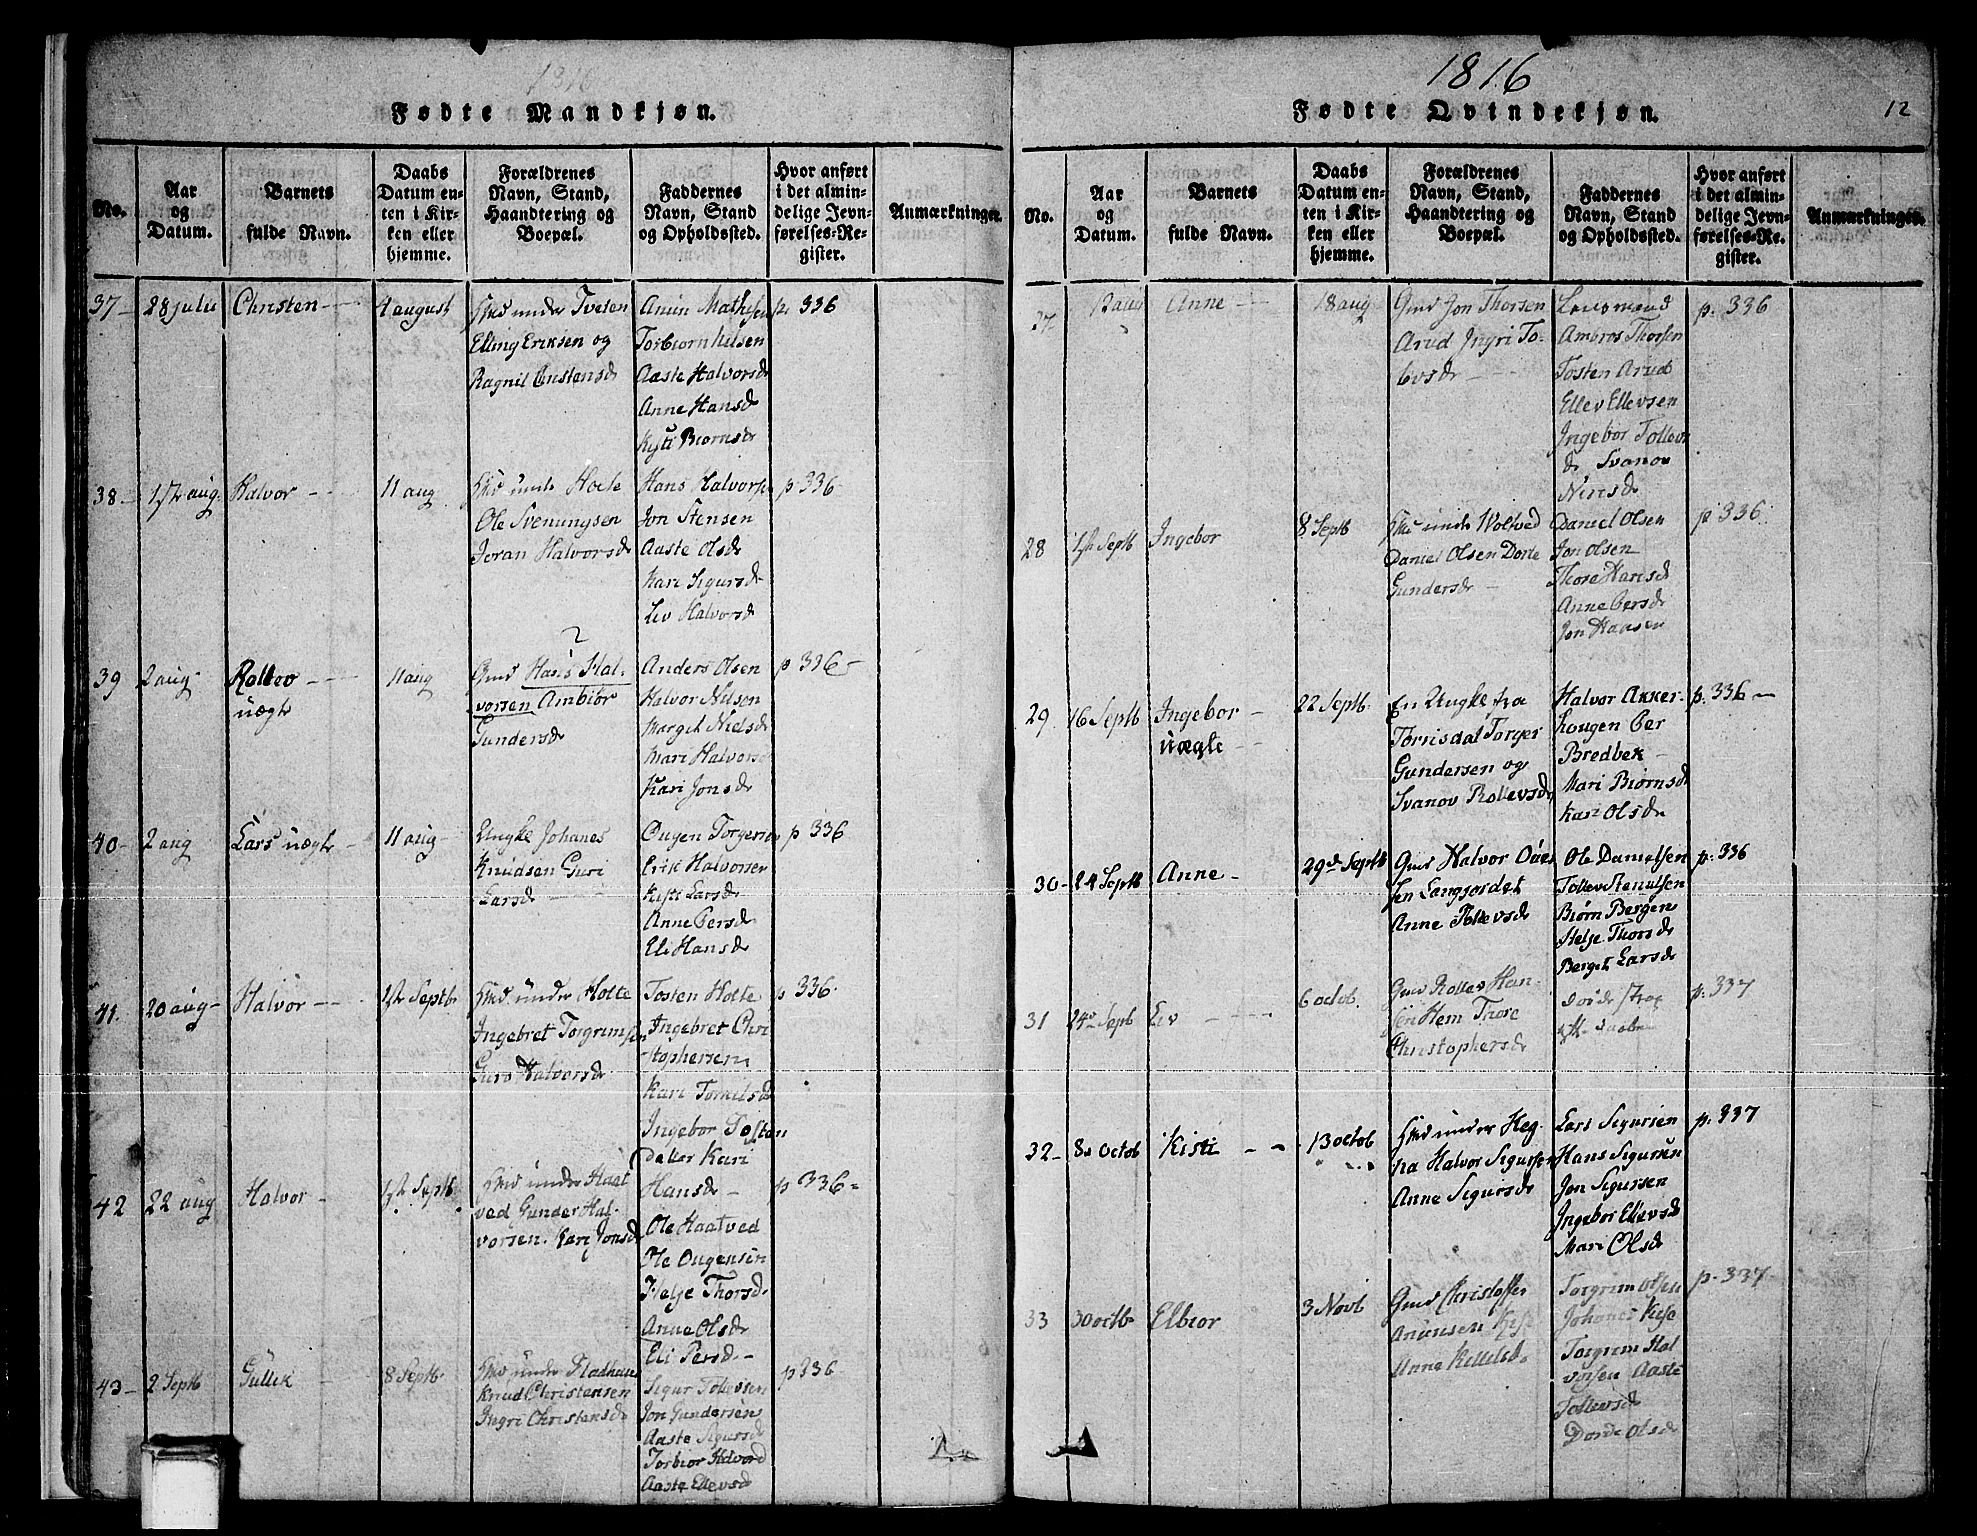 1816
Fødte Mandkjøn.
No.
Aar
og
Datum.
Barnets
fulde Navn.
Daabs
Datum en-
ten i Kir-
ken eller
hjemme.
Forældrenes
Navn, Stand,
Haandtering og
Boepæl.
Faddernes
Navn, Stand
og Opholdssted.
Hvor anført
i det almin-
delige Jevn-
førelses-Re-
gister.
Anmærkninger.
37
28 julii
Christen
4 august
Hmd under Tveten
Elling Eriksen og
Ragnil
p. 336
Torbiorn Nilsen
Aaste Halvorsd
Anne Hansd
Kisti Biørnsd
38
1ste aug.
Halvor
11 aug
Hmd under Hoete
Ole Svenungsen
Joran Halvorsd
Hans Halvorsen
Jon Stensen
Aaste Olsd
Kari Sigursd
Liv Halvorsd
p 336
39
2 aug
Rollev
uægte
11 aug
2
Gmd Hans Hal-
vorsen Ambior
Gundersd
Anders Olsen
Halvor Nilsen
Margit Nielsd
Mari Halvorsd
Kari Jonsd
p 336
40
2 aug
Lars uægte
11 aug
Ungke Johanes
Knudsen Guri
Larsd
Ougen Torgersen
Erik Halvorsen
Kisti Larsd
Anne Persd
Eli Hansd
p 336
41.
20 aug
Halvor
1ste Septb.
Hmd under Holte
Ingebret Torgrimsen
Guro Halvorsd
Tosten Holte
Ingebret Chri
stophersen
Kari Tornilsd
Ingebor Tostens
datter Kari
Hansd
p 336
42
22 aug
Halvor
1ste Septb
Hmd under Haat
ved Gunder Hal-
vorsen. Kari Jonsd
Ole Haatved
Ole Ougensen
Helje Thorsd
Anne Olsd
Eli Persd
p 336
43
2 Septb
Gullik
8 Septb.
Hmd under
Knud Christensen
Ingri Christensd
Sigur Tollevsen
Jon Gundersen
Aaste Sigursd
Torbior Halvord
Aaste Ellevsd
p 336
1816
Fødte Qvindekjøn.
12
No.
Aar
og
Datum.
Barnets
fulde Navn.
Daabs
Datum en-
ten i Kir-
ken eller
hjemme.
Forældrenes
Navn, Stand,
Haandtering og
Boepæl.
Faddernes
Navn, Stand
og Opholdssted.
Hvor anført
i det almin-
delige Jevn-
førelses-Re-
gister.
Anmærkninger.
27
Anne
18 aug
Gmd Jon Thorsen
Arud Ingri To-
Lensmand
Ambros Thorsen
Tosten Arud
Ellev Ellevsen
Ingebor Tollevs
d Svanov
Nirisd
p. 336
28
1ste Septb
Ingebor
8 Septb
Hmd under Woltved
Daniel Olsen Dorte
Gundersd
Daniel Olsen
Jon Olsen
Thore Harisd
Anne Persd
Jon Haasen
p 336
29
16 Septb
Ingebor
uægte
22 Septb.
En Ungke fra
Tornisdal Torger
Gundersen og
Svanov Rollevsd
Halvor Akker-
hougen Per
Bredbek
Mari Biørnsd
Kari Olsd
p. 336
30
24 Septb
Anne
29de Septb
Gmd Halvor
sen Langjordet
Anne Tollevsd
Ole Danielsen
Tollev Stenulsen
Biørn Bergen
Helje Thorsd
Berget Larsd
p. 336
31
24de Septb
Liv
6 octob.
Gmd Rollev Han-
sen Hem Thore
Christophersd
p. 337
32
8de Octob
Kisti
13 octob
Hmd under Heg-
na Halvor Sigursen
Anne Sigursd
Lars Sigursen
Hans Sigursen
Jon Sigursen
Ingebor Ellevsd
Mari Olsd
p. 337
33
30 octb
Elbior
3 Novb
Gmd Christoffer
Anunsen Kise
Anne Kittelsd
Torgrim Olsen
Johanes Kise
Torgrim Hal
vorsen Aaste
Tollevsd
Dorde Olsd
p. 337